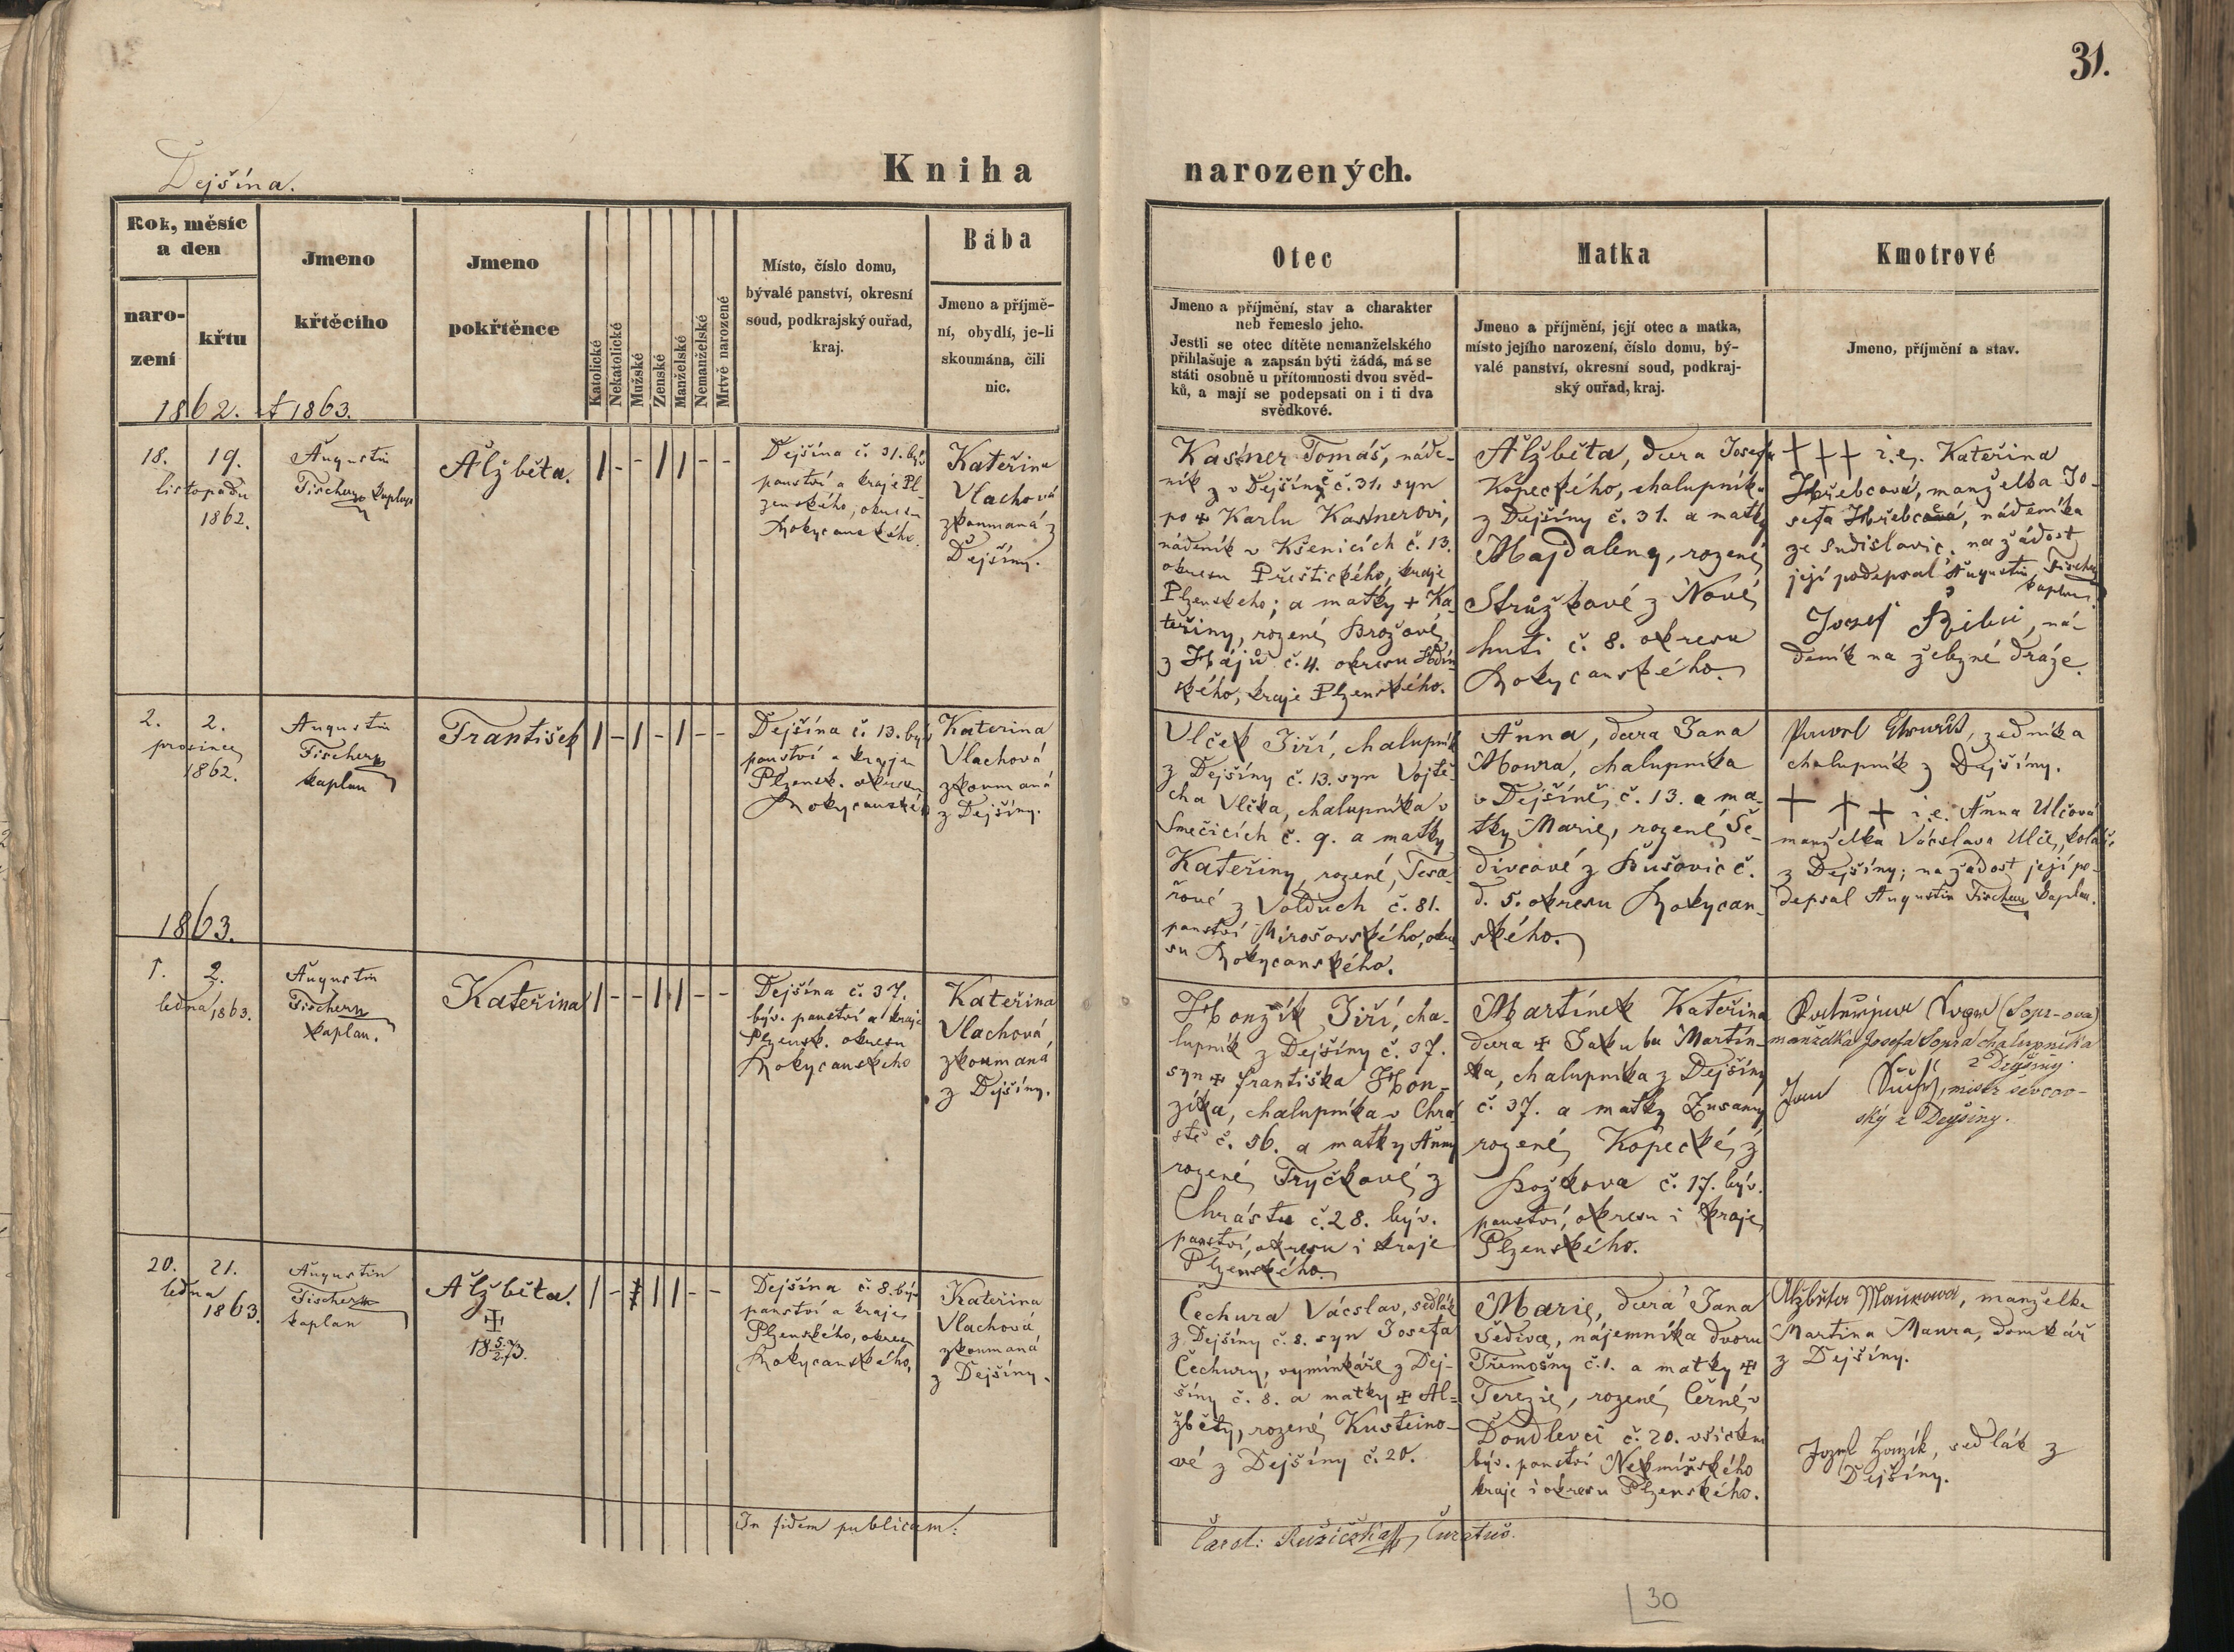 31.
Dejšína.
Kniha narozených.
Rok, měsíc
a den
naro-
zení
křtu
1862. et 1863.
Jmeno
křtěcího
Jmeno
pokřtěnce
Katolické
Nekatolické
Mužské
Ženské
Manželské
Nemanželské
Mrtvě narozené
Místo, číslo domu,
bývalé panství, okresní
soud, podkrajský ouřad,
kraj.
Bába
Jmeno a příjmě-
ní, obydlí, je-li
skoumána, čili
nic.
Otec
Jmeno a příjmění, stav a charakter
neb řemeslo jeho.
Jestli se otec dítěte nemanželského
přihlašuje a zapsán býti žádá, má se
státi osobně u přítomnosti dvou svěd-
ků, a mají se podepsati on i ti dva
svědkové.
Matka
Jmeno a příjmění, její otec a matka,
místo jejího narození, číslo domu, bý-
valé panství, okresní soud, podkraj-
ský ouřad, kraj.
Kmotrové
Jmeno, příjmění a stav.
18. 19.
listopadu
1862.
Augustin
Fischer kaplan
Alžběta.
1 - - 1 1 - -
Dejšína č. 31. býv
panství a kraje Pl-
zenského, okresu
Rokycanského.
Kateřina
Vlachová
zkoumaná z
Dejšíny.
Kastner Tomáš, náde-
ník z v Dejšíně č. 31. syn
po + Karlu Kastnerovi,
nádeník v Kšenicích č. 13.
okresu Přeštického, kraje
Plzenského; a matky + Ka-
teřiny, rozené Brožové
z Hájů č. 4. okresu
ského, kraje Plzenského.
Alžběta, dcera Josefa
Kopeckého, chalupníka
z Dejšíny č. 31. a matky
Majdaleny, rozené
Strůžkové z Nové
huti č. 8. okresu
Rokycanského.
+ + + i.e. Kateřina
Hřebcová, manželka Jo-
sefa Hřebce, nádeníka
ze Sudislavic, na žádost
její podepsal Augustin Fischer
kaplan.
Josef, ná-
deník na železné dráze.
2. 2.
prosince
1862.
Augustin
Fischer
kaplan
František
1 - 1 - 1 - -
Dejšína č. 13. býv
panství a kraje
Plzensk. okresu
Rokycanské
Kateřina
Vlachová
zkoumaná
z Dejšíny.
Vlček Jiří, chalupník
z Dejšíny č. 13. syn Vojtě-
cha Vlčka, chalupníka v
Smečicích č. 9. a matky
Kateřiny, rozené, Tesa-
řové z Volduch č. 81.
panství Mirošovského, okre
su Rokycanského.
Anna, dcera Jana
Moura, chalupníka
v Dejšíně, č. 13. a ma-
tky Marie, rozené Še-
divcové z Bušovic č.
d. 5. okresu Rokycan-
ského.
Pawel, zedníka
chalupník z Dejšíny.
+ + + i.e. Anna Ulčová
manželka Václava Ulče, koláře
z Dejšíny; na žádost její po-
depsal Augustin Fischer kaplan.
1863.
1. 2.
ledna 1863.
Augustin
Fischer
kaplan.
Kateřina
1 - - 1 1 - -
Dejšína č. 37.
býv. panství a kraje
Plzensk. okresu
Rokycanského
Kateřina
Vlachová
zkoumaná
z Dejšíny.
Honzík Jiří, cha-
lupník z Dejšíny č. 37.
syn + Františka Hon-
zíka, chalupníka v Chrá
stě č. 56. a matky Anny
rozené Fryčkové z
Chrástu č. 28. býv.
panství, okresu i kraje
Plzenského.
Martínek Kateřina
dcera + Jakuba Martín-
ka, chalupníka z Dejšíny
č. 37. a matky Zusany
rozené Kopecké, z
Božkova č. 17. býv.
panství, okresu i kraje
Plzenského.
(Sopr-ova)
manželka Josefa Sopra chalupníka
z Degšiny.
Jan, mistr ševcov-
ský z Degšiny.
20. 21.
ledna
1863.
Augustin
Fischer
kaplan
Alžběta.
+
18 5/2 73.
1 - 1 1 - -
Dejšína č. 8. býv
panství a kraje
Plzenského, okresu
Rokycanského,
Kateřina
Vlachová
zkoumaná
z Dejšíny.
Čechura Václav, sedlák
z Dejšíny č. 8. syn Josefa
Čechury, vyminkáře z Dej-
šíny č. 8. a matky + Al-
žběty, rozené Kusteino-
vé z Dejšíny č. 20.
Marie, dcera Jana
Šedivce, nájemníka dvoru
Třemošny č. 1. a matky +
Terezie, rozené Černé v
Doudlevci č. 20. všickni
býv. panství Nekmířského
kraje i okresu Plzenského.
Alžběta Maurowá, manželka
Martina Maura, domkář
z Dejšíny.
Jozef Honzík, sedlák z
Dejšíny.
In fidem publicam:
Carol:Ružička, Curatus.
30